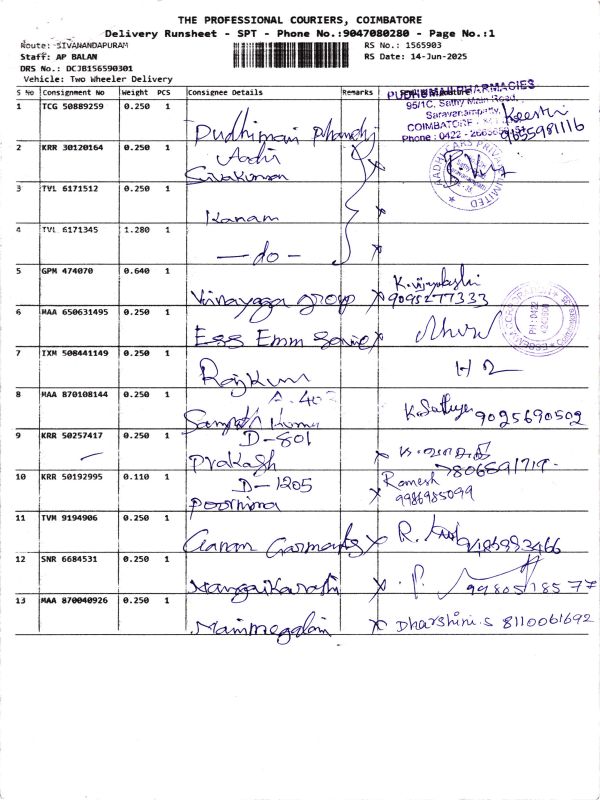 THE PROFESSIONAL COURIERS, COIMBATORE
Delivery Runsheet - SPT - Phone No.:9047080280 - Page No.:1
Route: SIVANANDAPURAM RS No.: 1565903
Staff: AP BALAN RS Date: 14-Jun-2025
DRS No.: DCJB156590301
Vehicle: Two Wheeler Delivery
S No Consignment No Weight PCS Consignee Details Remarks
PUDHUMAI PHARMACIES
95/1C, Sathy Main Road,
Saravanampatty,
COIMBATORE
Phone : 0422
1 TCG 50889259 0.250 1
9655981116
2 KRR 30120164 0.250 1 Aadhi
Sivakumar
3 TVL 6171512 0.250 1 Kanam
4 TVL 6171345 1.280 1 -do-
5 GPM 474070 0.640 1 Vinayaga group
9095277333
6 MAA 650631495 0.250 1 Ess Emm
7 IXM 508441149 0.250 1 Rajkum H2
8 MAA 870108144 0.250 1 A.403
Sampath Kumar 9025690502
9 KRR 50257417 0.250 1 D-801
Prakash
10 KRR 50192995 0.110 1 D-1205
Poornima Ramesh
9986985099
11 TVM 9194906 0.250 1 Garments R.
12 SNR 6684531 0.250 1 Mangaikarashi
13 MAA 870040926 0.250 1 Dharshini.S 8110061692